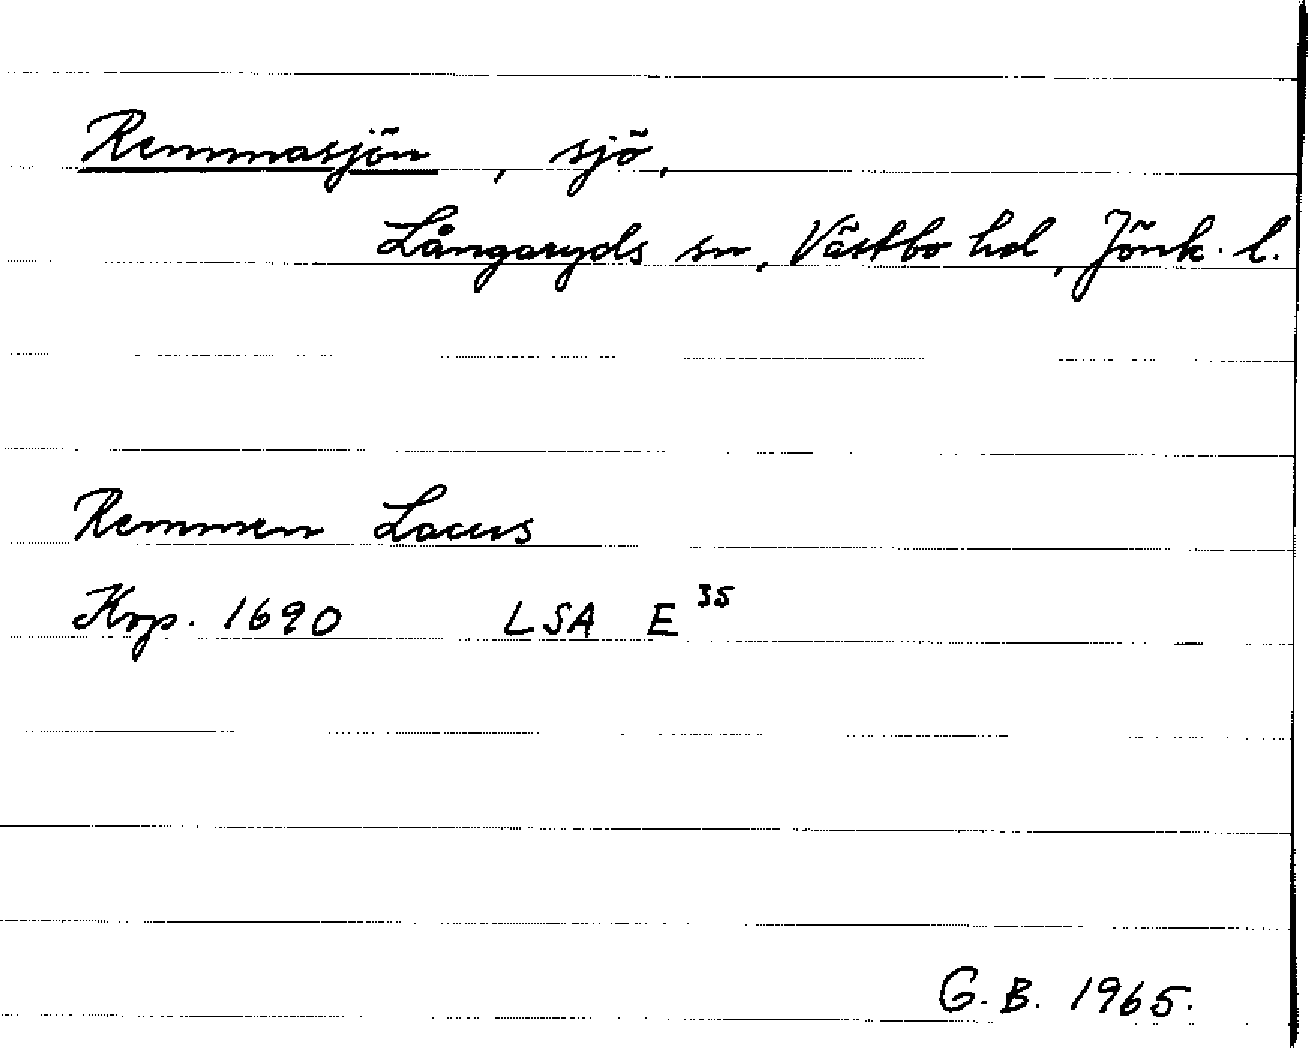 Remmasjön, sjö,
Långaryds sn, Västbo hd, Jönk. l.
Remmen Lacus
Krp. 1690 LSA E 35
G. B. 1965.